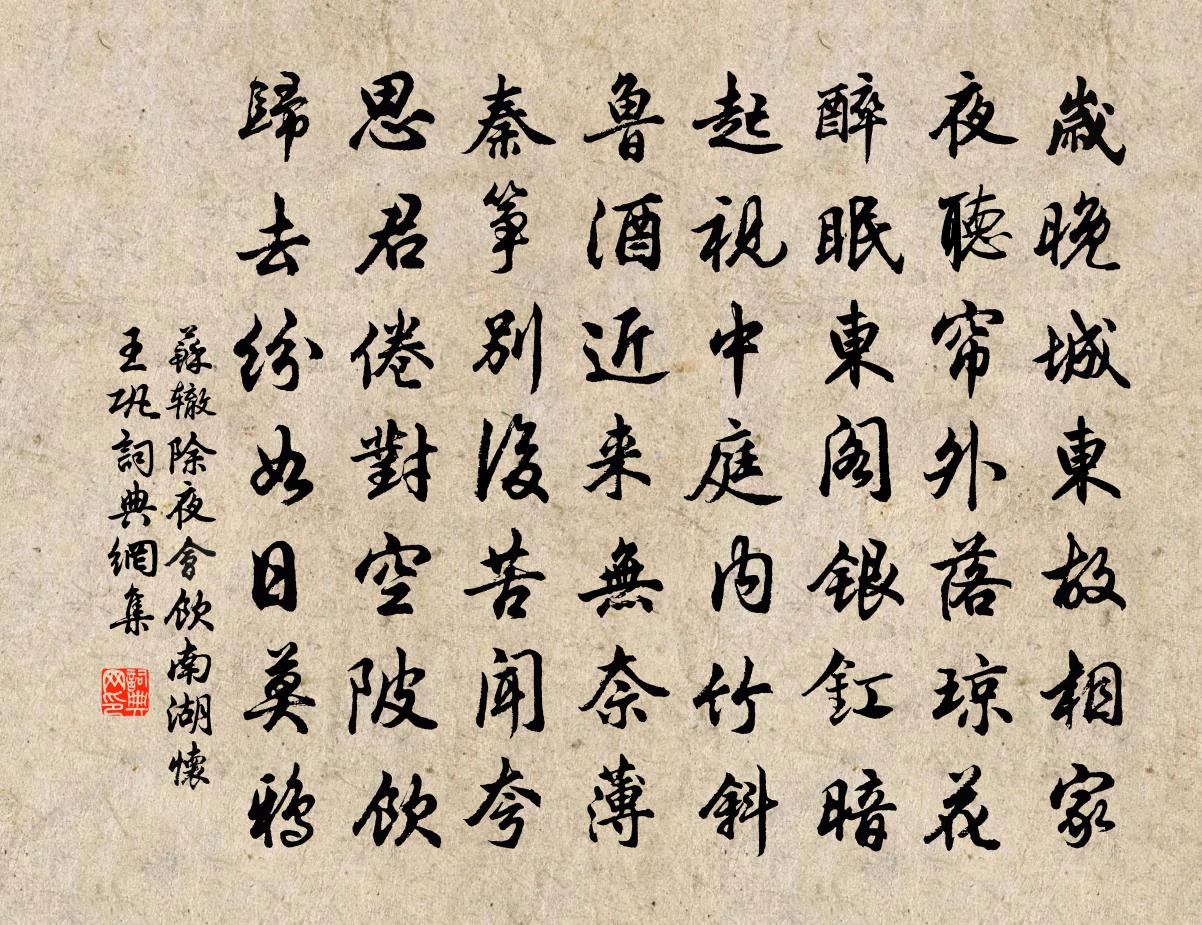 歲晚城東故相家
夜聽帘外落琼花
醉眠東阁銀釭暗
起視中庭内竹斜
魯酒近来無奈薄
秦筝别後苦聞夸
思君倦對空陂飲
歸去纷如日莫鴉
蘇辙除夜會飲南湖懷
王巩詞典網集
詞典网印